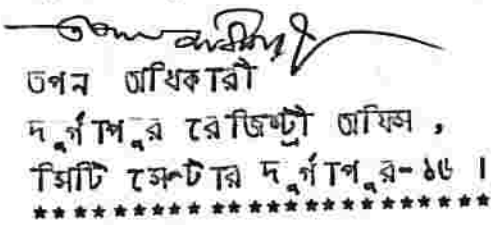 তপন অধিকারী
দূর্গাপুর রেজিষ্ট্রী অফিস ,
সিটি সেন্টার দূর্গাপুর-১৬ ।
***********************